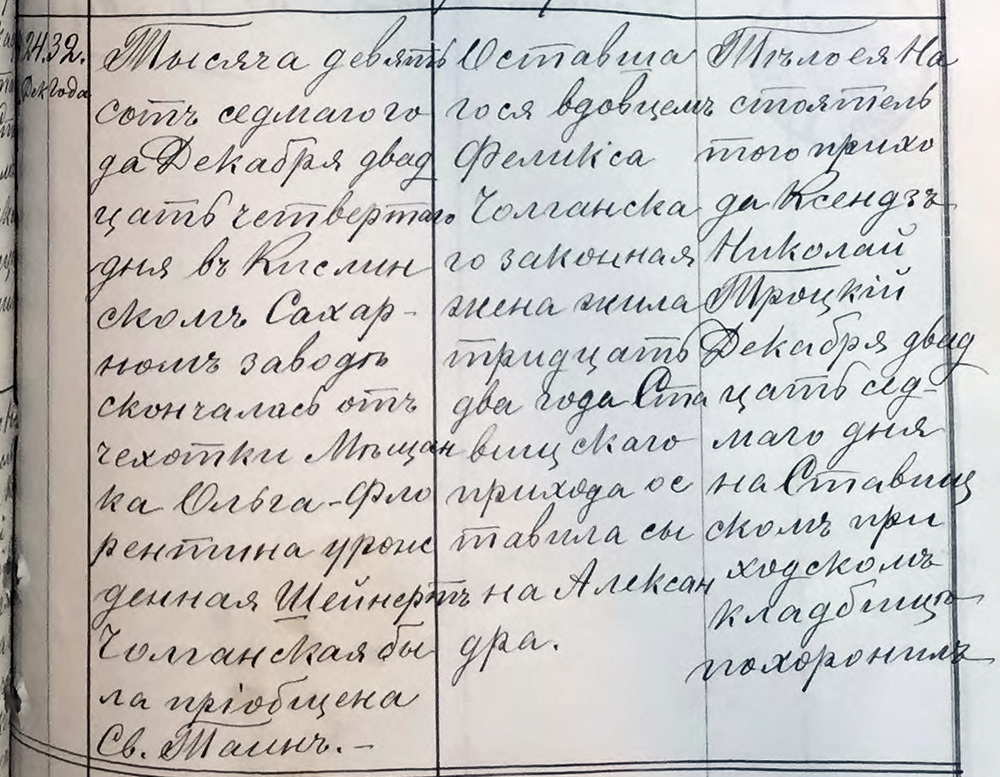 24. 32.
Дек года
Тысяча девять
сотъ седмагого
да Декабря двад
цать четвертаго
дня въ Кислин
скомъ Сахар-
номъ заводѣ
скончалась отъ
чехотки Мѣщан
ка Ольга-Фло
рентина урож
денная Шейнертъ
Чолганская бы
ла пріобщена
Св. Таинъ. –
Оставша
гося вдовцемъ
Феликса
Чолганска
го законная
жена жила
тридцать
два года Ста
вищскаго
прихода ос
тавила сы
на Алексан
дра.
Тѣло ея На
стоятель
того прихо
да Ксендзъ
Николай
Троцкій
Декабря двад
цать сед-
маго дня
на Ставищ
скомъ при
ходскомъ
кладбищѣ
похоронилъ